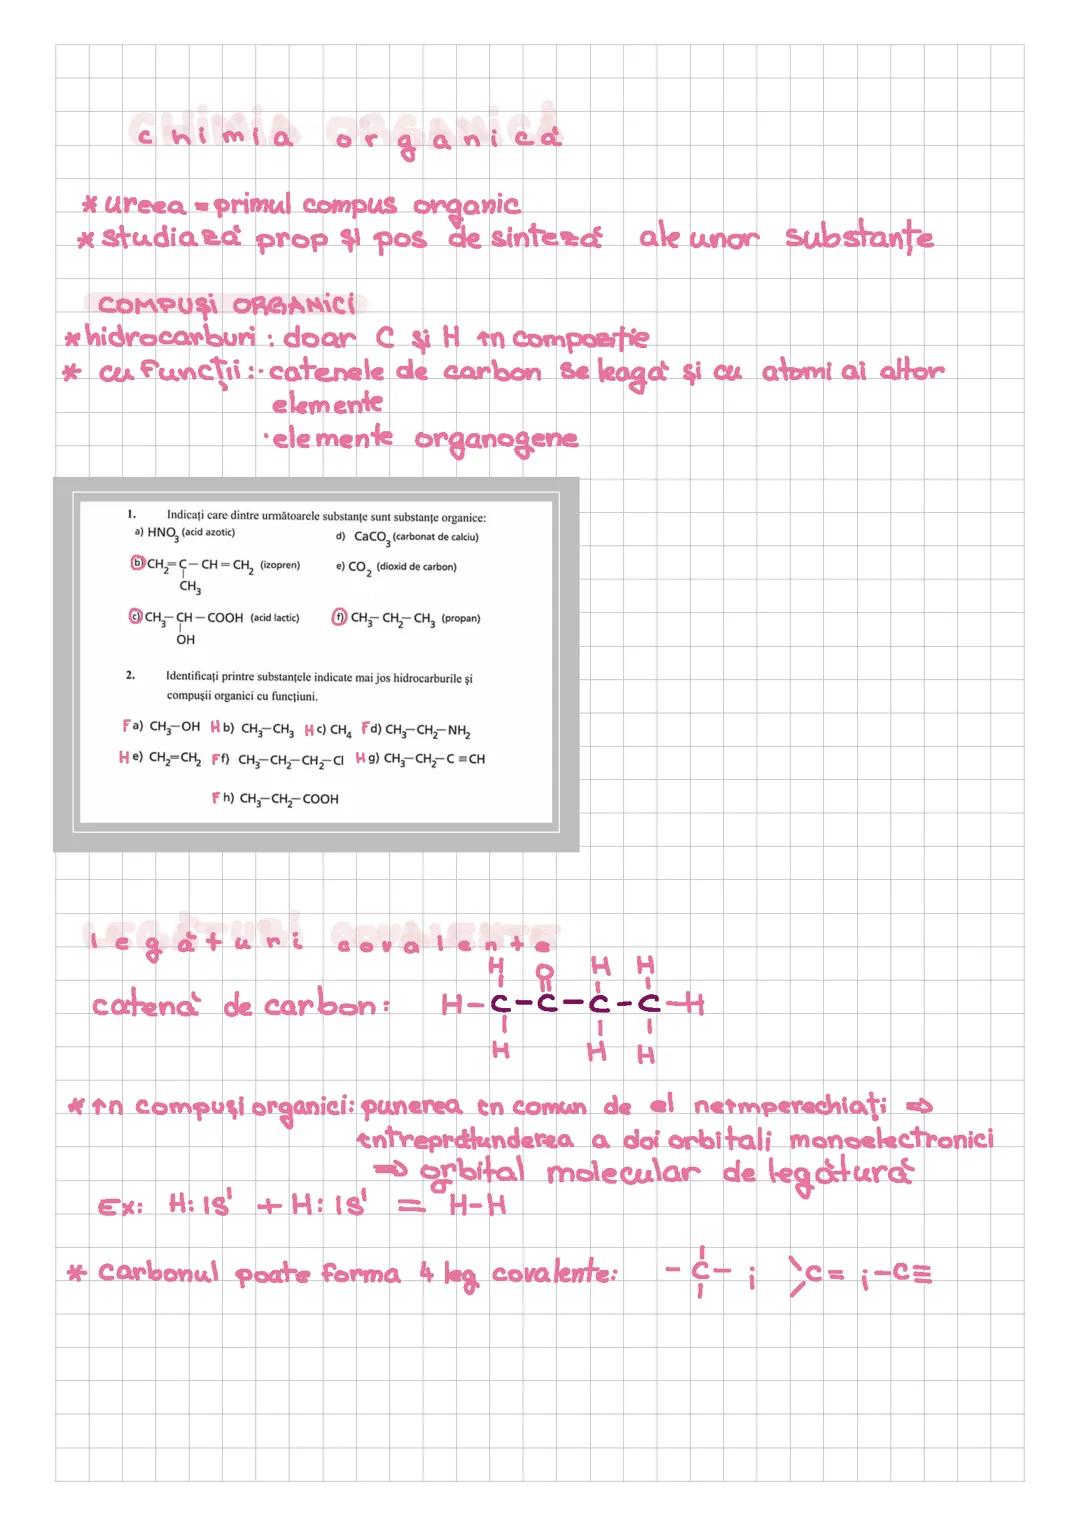 chimia organică
* ureea = primul compus organic
* studiază prop și pos de sinteză ale unor substanțe
COMPUȘI ORGANICI
* hidrocarburi : doar C și H în compoziție
* cu funcții : · catenele de carbon se leagă și cu atomi ai altor
elemente
· elemente organogene
1. Indicați care dintre următoarele substanțe sunt substanțe organice:
a) HNO₃ (acid azotic) d) CaCO₃ (carbonat de calciu)
b) CH₂=C—CH=CH₂ (izopren) e) CO₂ (dioxid de carbon)
CH₃
c) CH₃—CH—COOH (acid lactic) f) CH₃—CH₂—CH₃ (propan)
OH
2. Identificați printre substanțele indicate mai jos hidrocarburile și
compușii organici cu funcțiuni.
F a) CH₃—OH H b) CH₃—CH₃ H c) CH₄ F d) CH₃—CH₂—NH₂
H e) CH₂=CH₂ F f) CH₃—CH₂—CH₂—Cl H g) CH₃—CH₂—C≡CH
F h) CH₃—CH₂—COOH
legături covalente
H O H H
catenă de carbon: H-C-C-C-C-H
H H H
* în compuși organici: punerea în comun de el neîmperechiați ⇒
întrepătunderea a doi orbitali monoelectronici
⇒ orbital molecular de legătură
Ex: H: 1S¹ + H: 1S¹ = H-H
* carbonul poate forma 4 leg covalente: -C- ; >C= ; -C≡